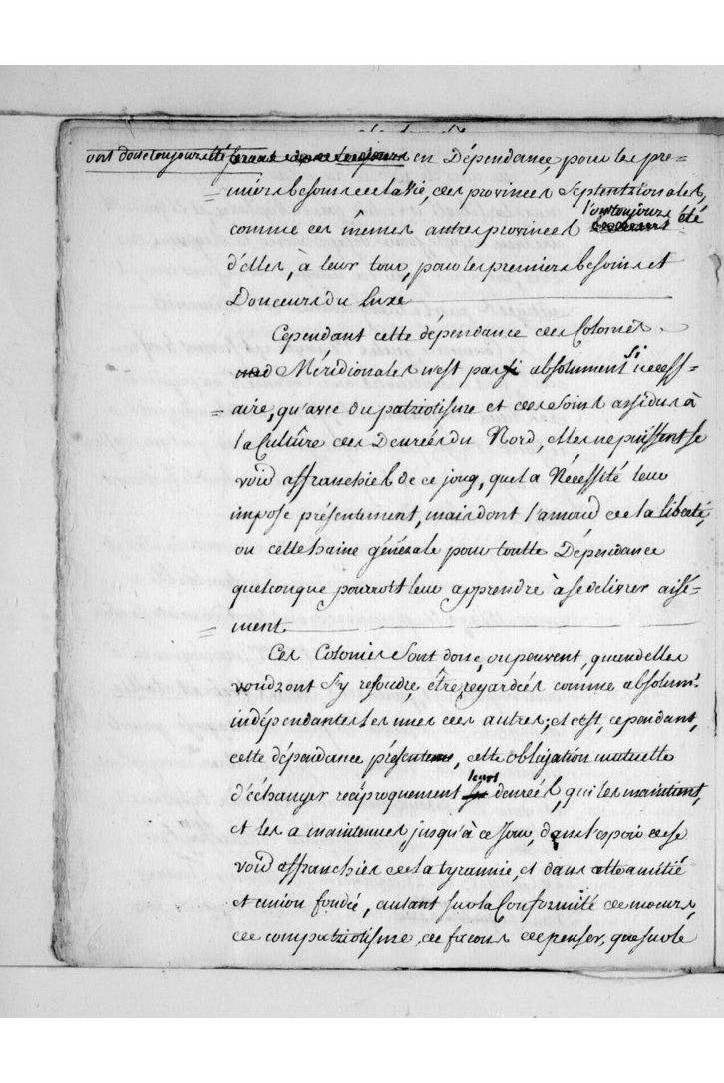 ont donc toujours été en Dépendance, pour les pre=
miers besoins de la vie, des provinces Septentrionales,
comme ces mêmes autres provinces l'ont toujours été
d'elles, à leur tour, pour les premiers besoins et
Douceurs du Luxe
Cependant cette dépendance des Colonies
Méridionales n'est pas absolument si necess=
aire, qu'avec du patriotisme et des soins assidus à
la Culture des Denrées du Nord, elles ne puissent se
voir affranchies de ce joug, que la Nécessité leur
impose présentement, mais dont l'amour de la liberté,
ou cette haine générale pour toutte Dépendance
quelconque pourroit leur apprendre à se delivrer aisé=
ment
Ces Colonies sont donc, ou peuvent, quand elles
voudront s'y resoudre, être regardées comme absolumt.
indépendantes les unes des autres; et c'est, cependant,
cette dépendance présente, cette obligation mutuelle
d'échanger réciproquement leurs denrées, qui les maintient,
et les a maintenues jusqu'à ce Jour, dans l'espoir de se
voir affranchies de la tyrannie, et dans cette amitié
et union fondée, autant sur la Conformité de moeurs,
de compatriotisme, de facons de penser, que sur le